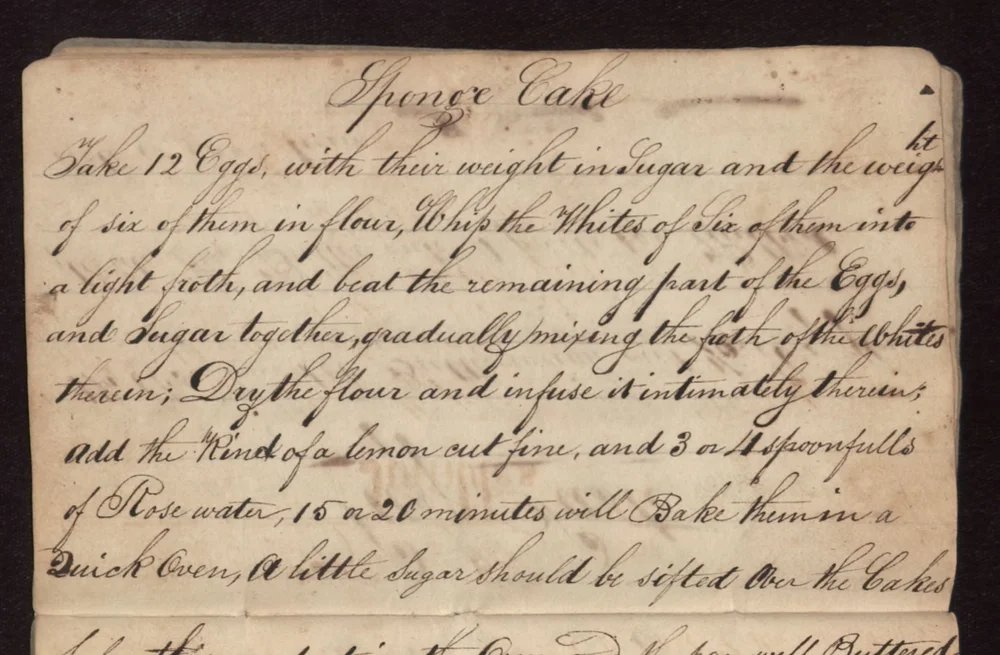 Sponge Cake
Take 12 Eggs, with their weight in Sugar and the weight
of six of them in flour, Whip the Whites of Six of them into
a light froth, and beat the remaining part of the Eggs,
and Sugar together, gradually mixing the froth of the Whites
therein; Dry the flour and infuse it intimately therein;
add the Rind of a lemon cut fine, and 3 or 4 spoonfulls
of Rose water, 15 or 20 minutes will Bake them in a
Quick Oven, A little Sugar should be sifted Over the Cakes
well Buttered